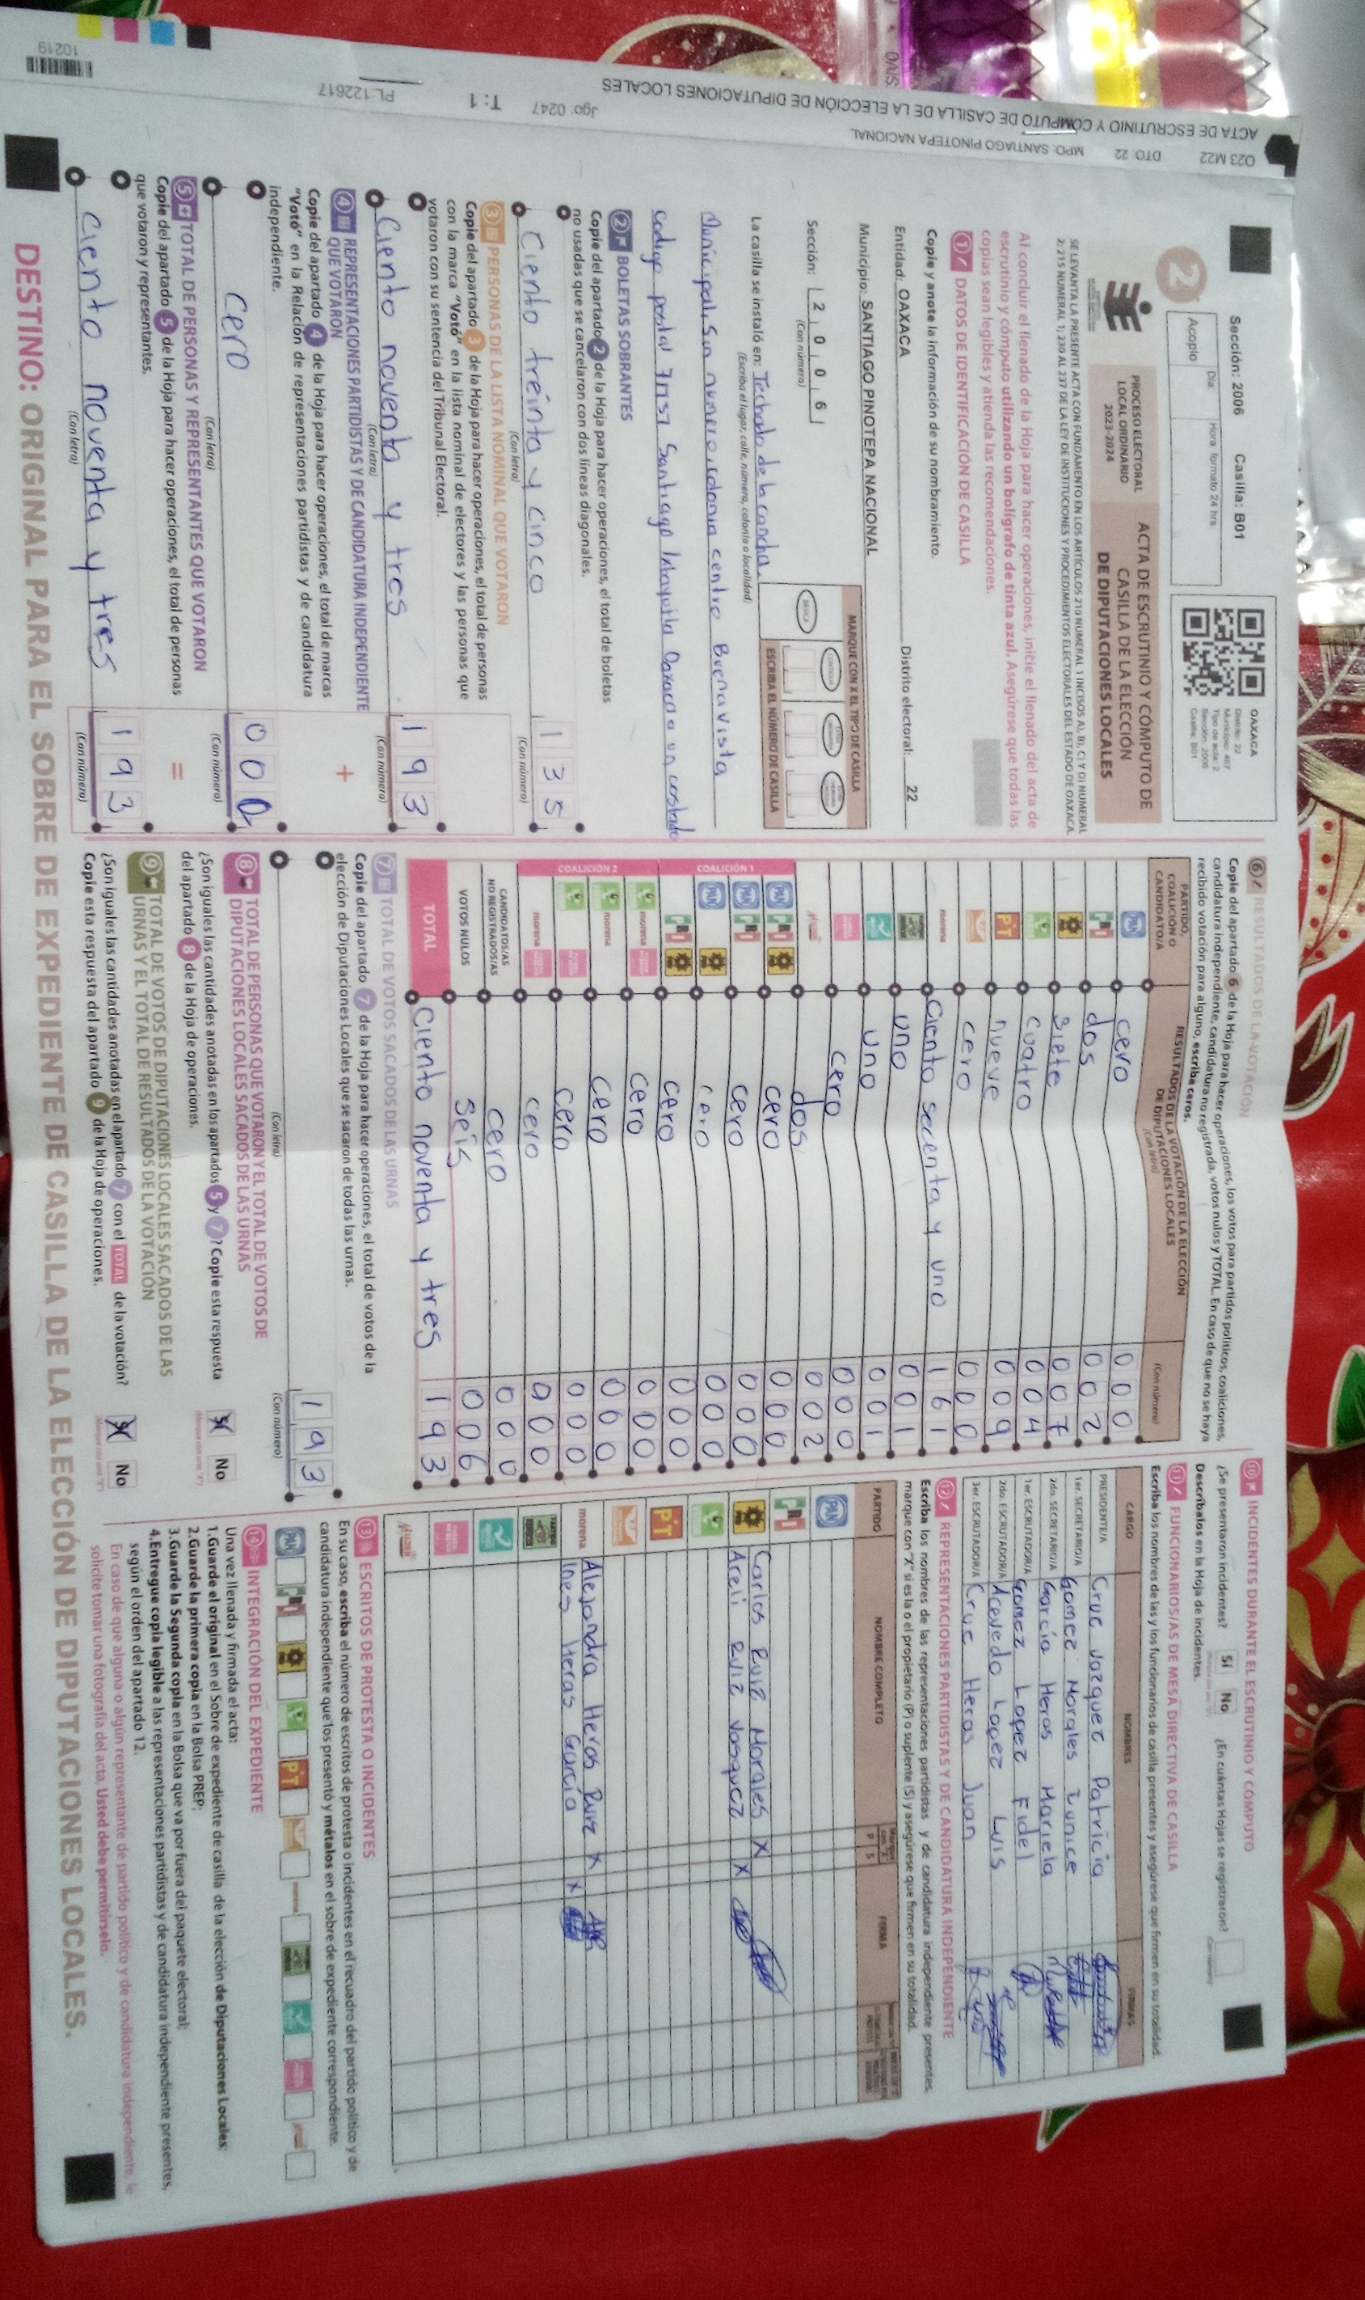 023 M22 DTO: 22 MPO: SANTIAGO PINOTEPA NACIONAL
ACTA DE ESCRUTINIO Y CÓMPUTO DE CASILLA DE LA ELECCIÓN DE DIPUTACIONES LOCALES
Jgo: 0247
T: 1
PL-122617
10219
Sección: 2006 Casilla: B01
2
Acopio
Día Hora formato 24 hrs
OAXACA
PROCESO ELECTORAL
LOCAL ORDINARIO
2023-2024
ACTA DE ESCRUTINIO Y CÓMPUTO DE
CASILLA DE LA ELECCIÓN
DE DIPUTACIONES LOCALES
Al concluir el llenado de la Hoja para hacer operaciones, inicie el llenado del acta de
escrutinio y cómputo utilizando un bolígrafo de tinta azul. Asegúrese que todas las
copias sean legibles y atienda las recomendaciones.
1 DATOS DE IDENTIFICACIÓN DE CASILLA
Copie y anote la información de su nombramiento.
Entidad: OAXACA Distrito electoral: 22
Municipio: SANTIAGO PINOTEPA NACIONAL
Sección: 2 0 0 6
(Con número)
MARQUE CON X EL TIPO DE CASILLA
ESCRIBA EL NÚMERO DE CASILLA
La casilla se instaló en: Techado de la cancha
(Escriba el lugar, calle, número, colonia o localidad)
municipal, sin número, colonia centro Buenavista
2 BOLETAS SOBRANTES
Copie del apartado 2 de la Hoja para hacer operaciones, el total de boletas
no usadas que se cancelaron con dos líneas diagonales.
Ciento treinta y cinco 135
(Con letra) (Con número)
3 PERSONAS DE LA LISTA NOMINAL QUE VOTARON
Copie del apartado 3 de la Hoja para hacer operaciones, el total de personas
con la marca "Votó" en la lista nominal de electores y las personas que
votaron con su sentencia del Tribunal Electoral.
Ciento noventa y tres 193
(Con letra) (Con número)
4 REPRESENTACIONES PARTIDISTAS Y DE CANDIDATURA INDEPENDIENTE
QUE VOTARON
Copie del apartado 4 de la Hoja para hacer operaciones, el total de marcas
"Votó" en la Relación de representaciones partidistas y de candidatura
independiente.
+
cero 000
(Con letra) (Con número)
5 TOTAL DE PERSONAS Y REPRESENTANTES QUE VOTARON
Copie del apartado 5 de la Hoja para hacer operaciones, el total de personas
que votaron y representantes.
=
Ciento noventa y tres 193
(Con letra) (Con número)
6 RESULTADOS DE LA VOTACIÓN
Copie del apartado 6 de la Hoja para hacer operaciones, los votos para partidos políticos, coaliciones,
candidatura independiente, candidatura no registrada, votos nulos y TOTAL. En caso de que no se haya
recibido votación para alguno, escriba ceros.
PARTIDO,
COALICIÓN O
CANDIDATO/A
RESULTADOS DE LA VOTACIÓN DE LA ELECCIÓN
DE DIPUTACIONES LOCALES
(Con letra) (Con número)
PAN cero 000
PRI dos 002
siete 007
cuatro 004
PT nueve 009
cero 000
morena Ciento secenta y uno 161
uno 001
uno 001
cero 000
dos 002
COALICIÓN 1
PAN PRI cero 000
PAN PRI cero 000
PAN cero 000
PRI cero 000
COALICIÓN 2
morena cero 000
morena cero 000
cero 000
morena cero 000
CANDIDATOS/AS
NO REGISTRADOS/AS cero 000
VOTOS NULOS Seis 006
TOTAL Ciento noventa y tres 193
7 TOTAL DE VOTOS SACADOS DE LAS URNAS
Copie del apartado 7 de la Hoja para hacer operaciones, el total de votos de la
elección de Diputaciones Locales que se sacaron de todas las urnas.
193
(Con letra) (Con número)
8 TOTAL DE PERSONAS QUE VOTARON Y EL TOTAL DE VOTOS DE
DIPUTACIONES LOCALES SACADOS DE LAS URNAS
¿Son iguales las cantidades anotadas en los apartados 5 y 7? Copie esta respuesta
del apartado 8 de la Hoja de operaciones.
Sí No
9 TOTAL DE VOTOS DE DIPUTACIONES LOCALES SACADOS DE LAS
URNAS Y EL TOTAL DE RESULTADOS DE LA VOTACIÓN
¿Son iguales las cantidades anotadas en el apartado 7 con el TOTAL de la votación?
Copie esta respuesta del apartado 9 de la Hoja de operaciones.
Sí No
10 INCIDENTES DURANTE EL ESCRUTINIO Y CÓMPUTO
¿Se presentaron incidentes? Sí No ¿En cuántas Hojas se registraron?
Descríbalos en la Hoja de incidentes.
11 FUNCIONARIOS/AS DE MESA DIRECTIVA DE CASILLA
Escriba los nombres de las y los funcionarios de casilla presentes y asegúrese que firmen en su totalidad.
CARGO NOMBRES FIRMAS
PRESIDENTE/A Cruz Vazquez Patricia
1er. SECRETARIO/A Gomez Morales Eunice
2do. SECRETARIO/A García Heras Mariela
1er. ESCRUTADOR/A Gomez Lopez Fidel
2do. ESCRUTADOR/A Acevedo Lopez Luis
3er. ESCRUTADOR/A Cruz Heras Juan
12 REPRESENTACIONES PARTIDISTAS Y DE CANDIDATURA INDEPENDIENTE
Escriba los nombres de las representaciones partidistas y de candidatura independiente presentes,
marque con "X" si es la o el propietario (P) o suplente (S) y asegúrese que firmen en su totalidad.
PARTIDO NOMBRE COMPLETO P S FIRMA
PAN
PRI Carlos Ruiz Morales X
Areli Ruiz Vasquez X
PT
morena Alejandra Heras Ruiz X
Ines Heras García X
13 ESCRITOS DE PROTESTA O INCIDENTES
En su caso, escriba el número de escritos de protesta o incidentes en el recuadro del partido político y de
candidatura independiente que los presentó y métalos en el sobre de expediente correspondiente.
PAN PRI PT morena
14 INTEGRACIÓN DEL EXPEDIENTE
Una vez llenada y firmada el acta:
1.Guarde el original en el Sobre de expediente de casilla de la elección de Diputaciones Locales;
2.Guarde la primera copia en la Bolsa PREP;
3.Guarde la Segunda copia en la Bolsa que va por fuera del paquete electoral;
4.Entregue copia legible a las representaciones partidistas y de candidatura independiente presentes,
según el orden del apartado 12.
En caso de que alguna o algún representante de partido político y de candidatura independiente, le
solicite tomar una fotografía del acta, Usted debe permitírselo.
DESTINO: ORIGINAL PARA EL SOBRE DE EXPEDIENTE DE CASILLA DE LA ELECCIÓN DE DIPUTACIONES LOCALES.